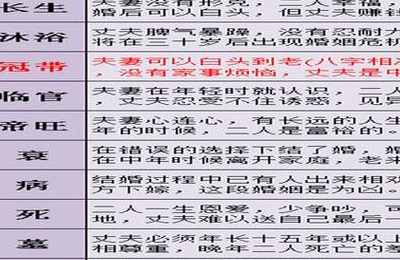 长生
夫妻没有刑克，二人幸福，
婚后可以白头，但丈夫赚钱
沐浴
丈夫脾气暴躁，没有忍耐力
将在三十岁后出现婚姻危机
冠带
夫妻可以白头到老(八字相
，没有家事烦恼，丈夫是中
临官
夫妻在年轻时就认识，二人
，丈夫忍受不住诱惑，见异
帝旺
夫妻心连心，有长远的人生
年的时候，二人是富裕的。
衰
在错误的选择下结了婚，婚
在中年时候离开家庭，老来
病
结婚过程中已有人出来相
方下嫁，这段婚姻是为凶。
死
二人一生恩爱，少争吵，可
地，丈夫难以送自己最后一
墓
丈夫必须年长十五年或以上
相尊重，晚年二人死亡的